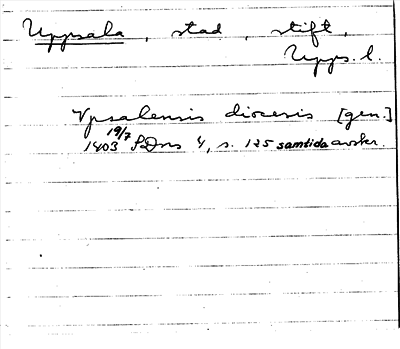 Uppsala, stad, stift,
Upps. l.
Vpsalensis diocesis [gen.]
19/7
1403 SDns 4, s. 125 samtida avskr.